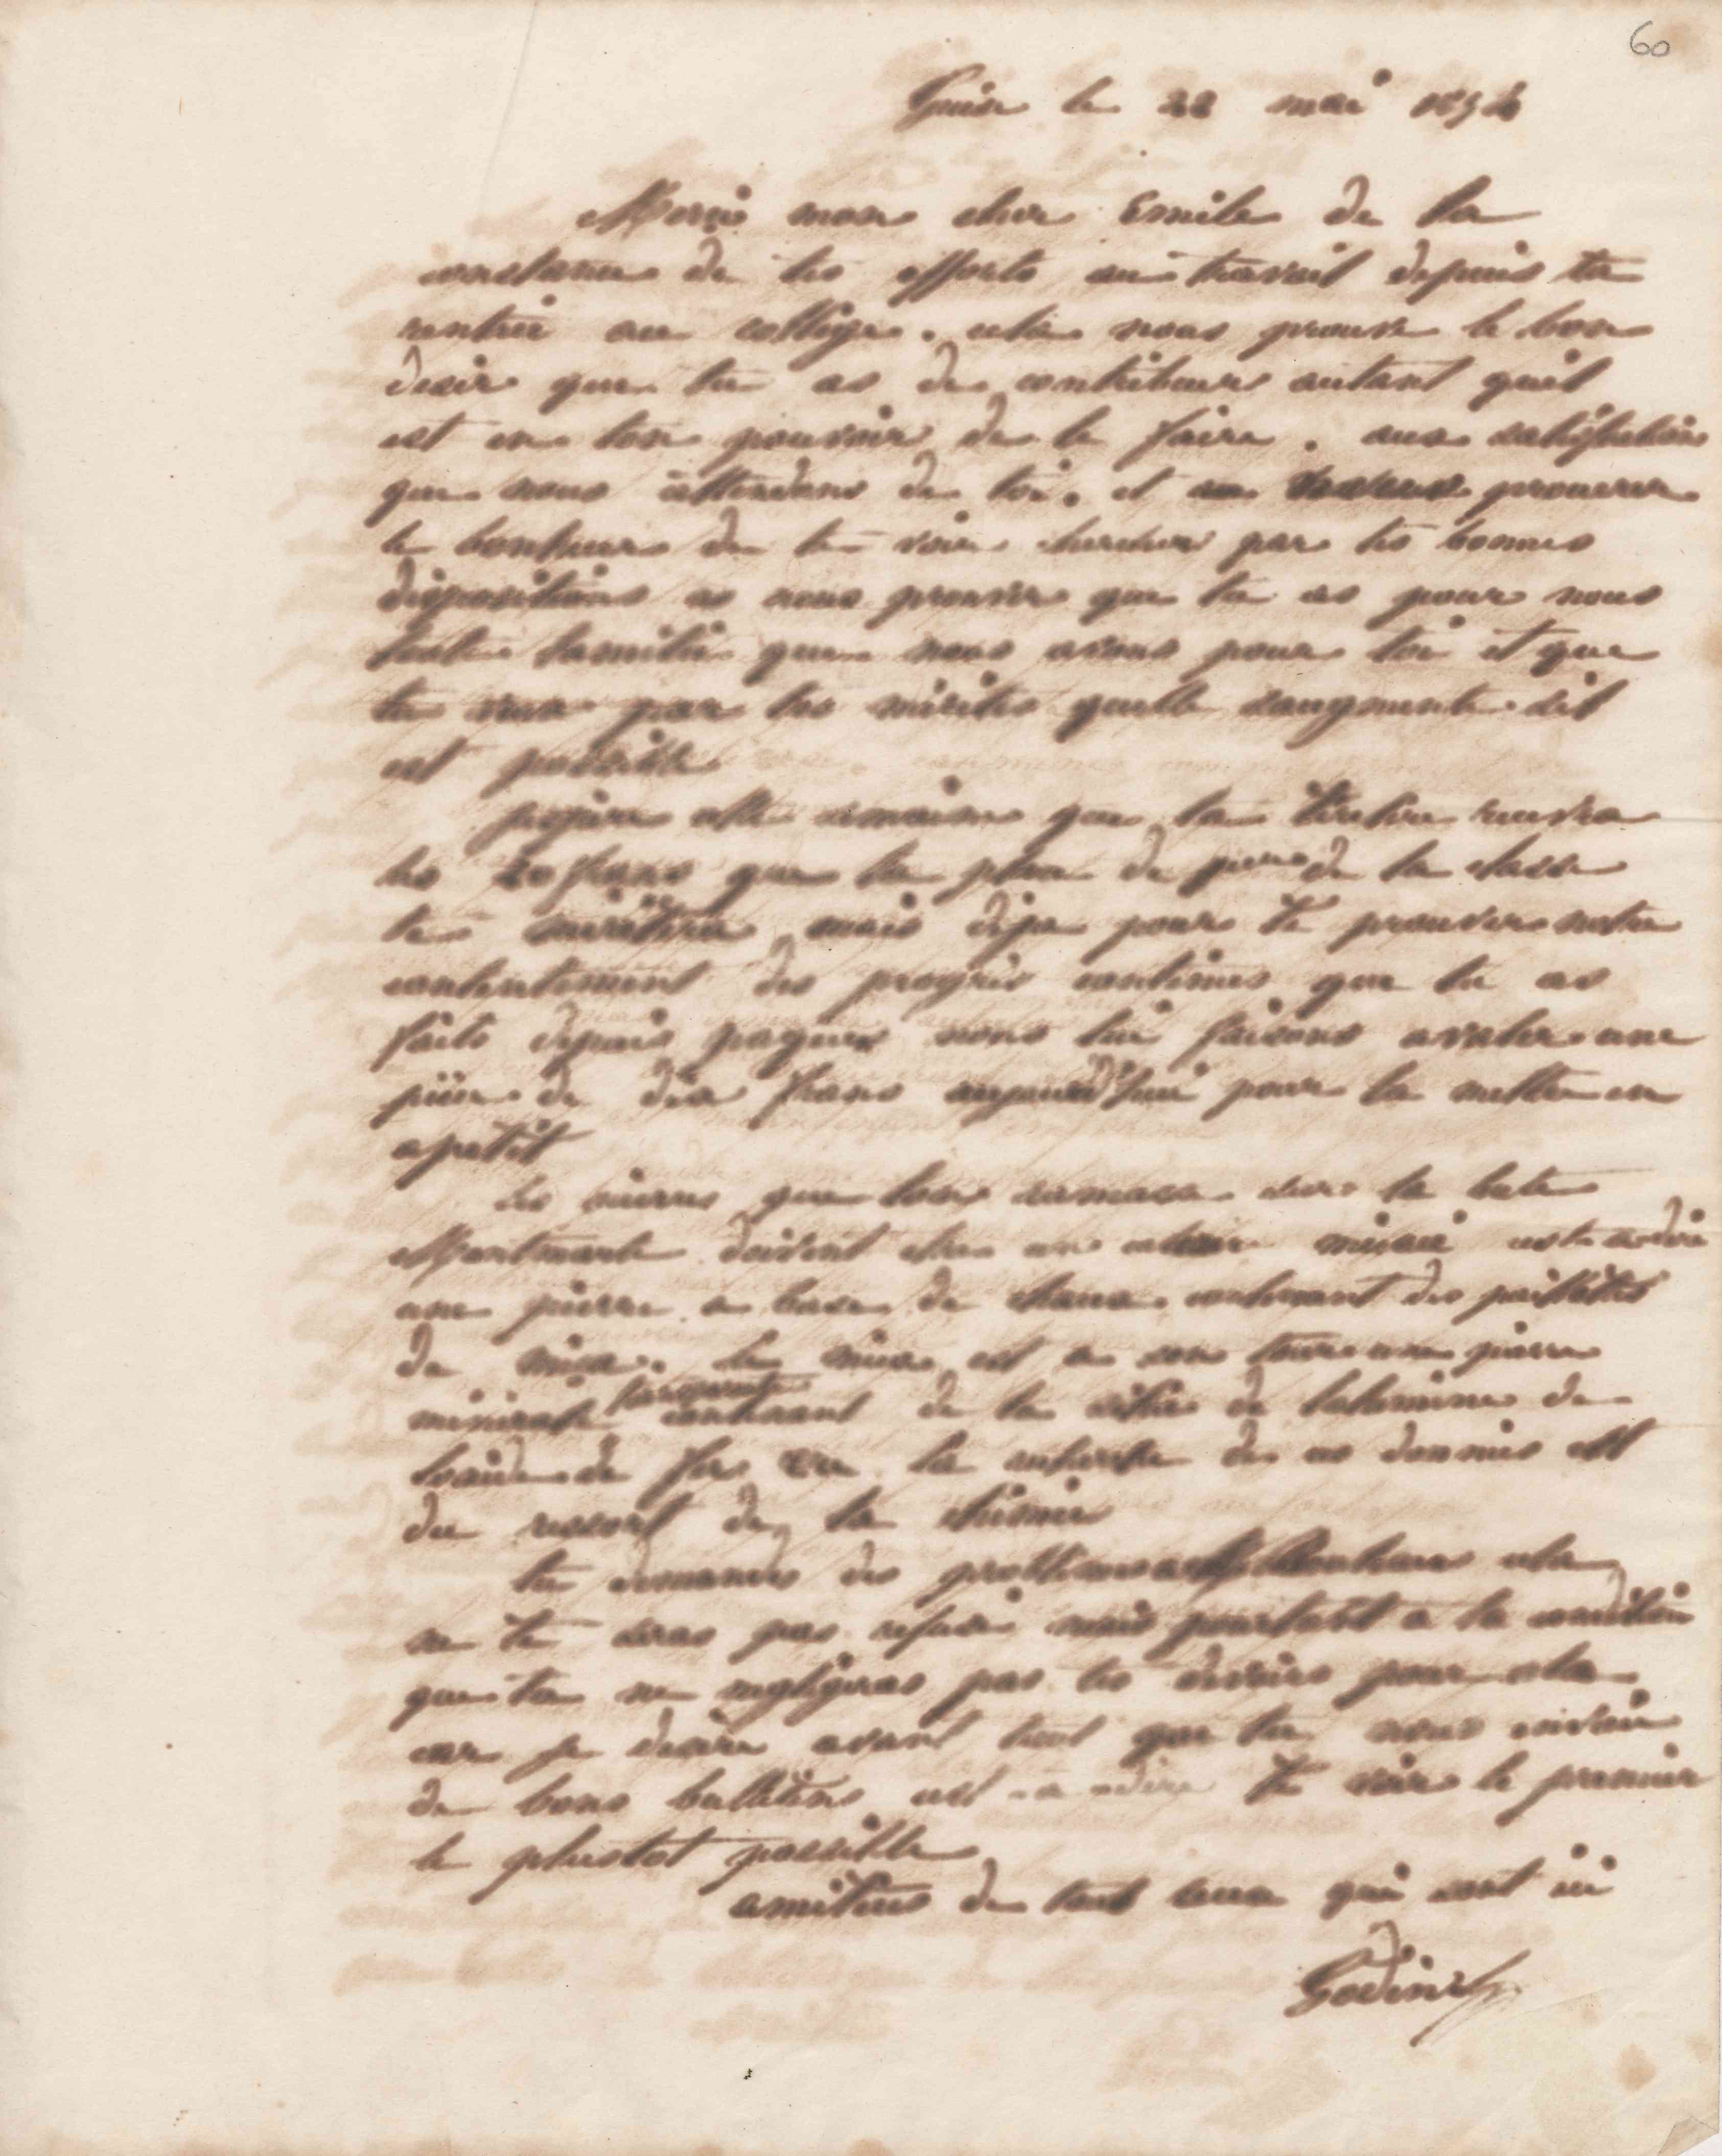 60
Guise le 22 mai 1854
Merci mon cher Emile de la
constance de tes efforts au travail depuis ta
rentrée au collège. cela nous prouve le bon
desir que tu as de contribuer autant quil
est en ton pouvoir de le faire. aux satisfactions
que nous attendons de toi. et procurer
le bonheur de te voir chercher par tes bonnes
dispositions a nous prouver que tu as pour nous
toute lamitié que nous avons pour toi et que
tu veux par tes mérites quelle saugmente sil
est possible
cette semaine que ta tirelire recevra
les 20 francs que la place de de la classe
te méritera mais deja pour te prouver notre
contentement des progrès continus que tu as
faits depuis paques nous lui faisons avaler une
pièce de dix francs aujourd'hui pour la mettre en
apetit
les pierres que lon ramasse sur la bute
Montmartre doivent etre un micacé cest a dire
une pierre a base de chaux contenant des paillettes
de mica. le mica est a son tour une pierre
minérale contenant de la silice de lalumine de
loxide de fer la recherche de ces données est
du ressort de la chimie
tu demandes des problèmes a cela
ne te seras pas refusé mais pourtant a la condition
que tu ne negligeras pas tes devoirs pour cela
car je desire avant tout que tu nous envoie
de bons bulletins cest -a -dire te voir le premier
le plustot possible
amitiés de tous ceux qui sont ici
Godin